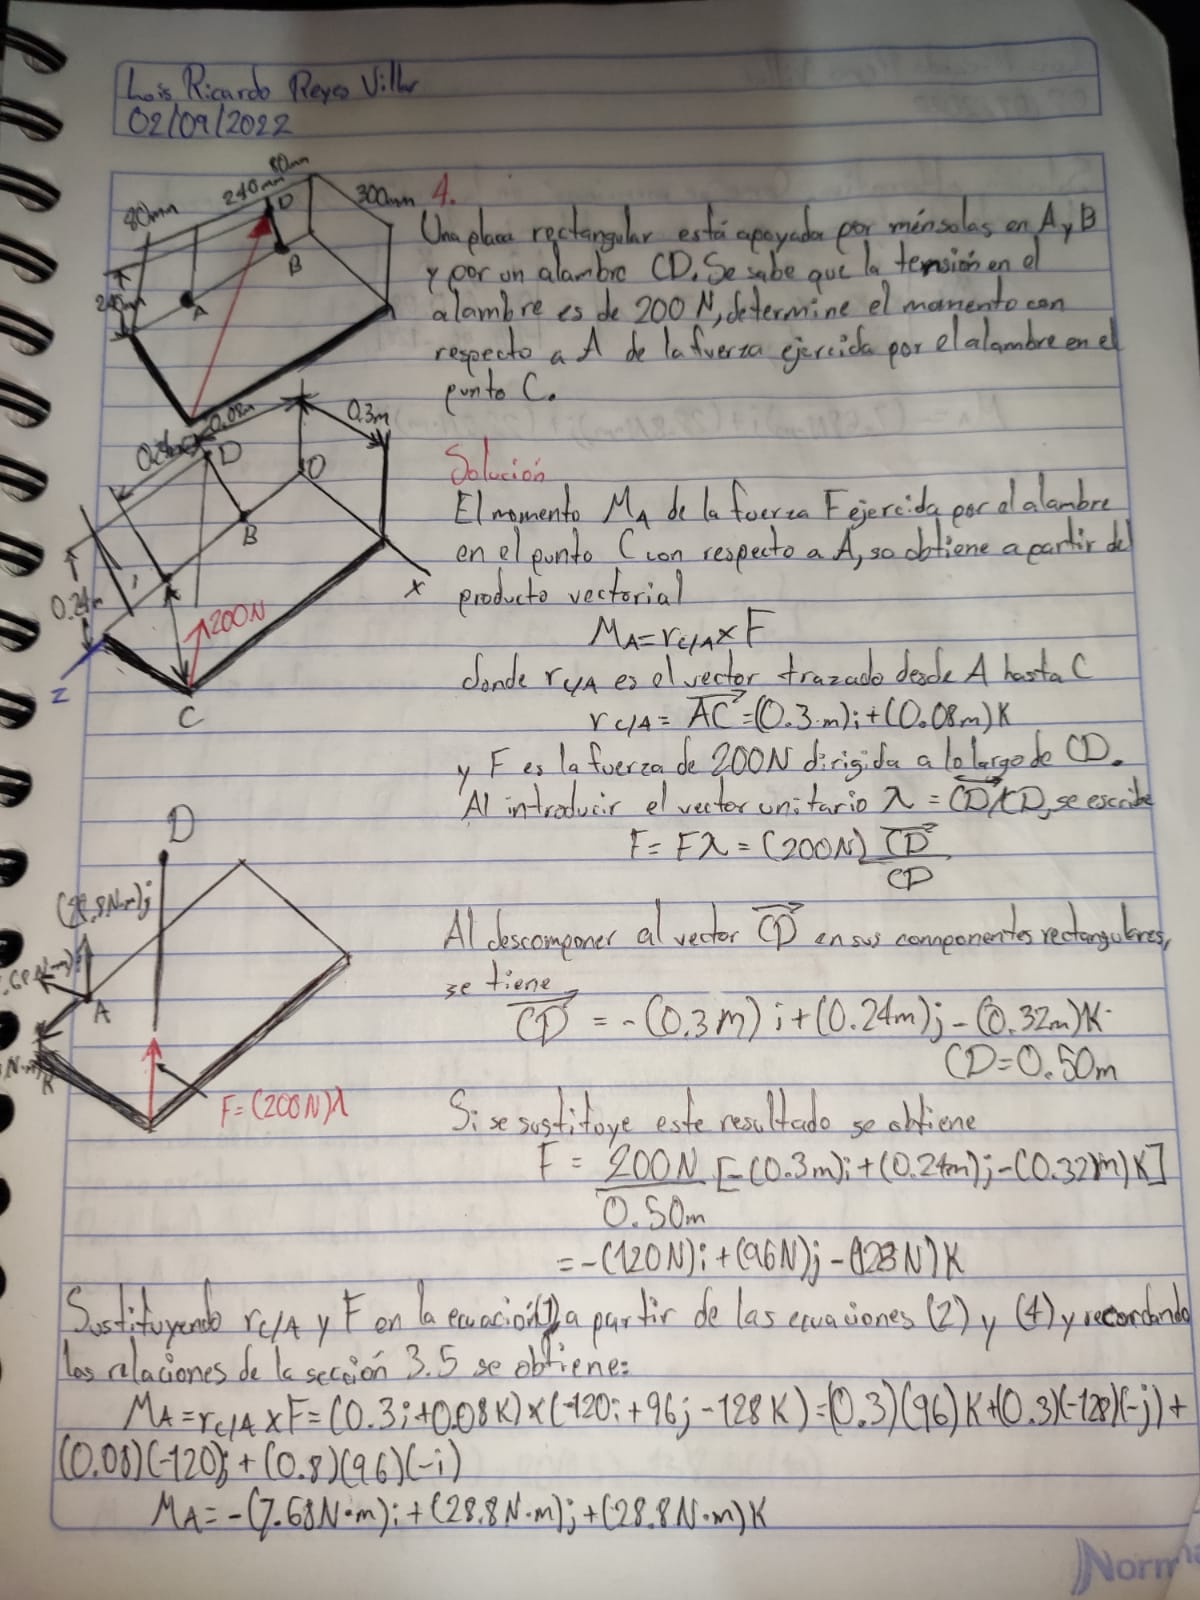 Luis Ricardo Reyes Villar
02/09/2022
80mm
240mm
80mm
300mm
D
B
A
240mm
4.
Una placa rectangular está apoyada por ménsolas en A y B
y por un alambre CD. Se sabe que la tensión en el
alambre es de 200 N, determine el momento con
respecto a A de la fuerza ejercida por el alambre en el
punto C.
0.08m
0.3m
D
O
B
A
0.24m
200N
X
Z
C
Solución
El momento MA de la fuerza F ejercida por el alambre
en el punto C con respecto a A, se obtiene a partir del
producto vectorial
MA=rC/A×F
donde rC/A es el vector trazado desde A hasta C
rC/A = AC⃗ =(0.3m)i+(0.08m)K
y F es la fuerza de 200N dirigida a lo largo de CD.
Al introducir el vector unitario λ = CD⃗/CD, se escribe
F = Fλ = (200N) CD⃗
CD
D
(28.8N·m)j
A
F=(200N)λ
Al descomponer al vector CD⃗ en sus componentes rectangulares,
se tiene
CD⃗ = -(0.3m)i+(0.24m)j-(0.32m)K
CD=0.50m
Si se sustituye este resultado se obtiene
F = 200N [-(0.3m)i+(0.24m)j-(0.32m)K]
0.50m
=-(120N)i+(96N)j-(128N)K
Sustituyendo rC/A y F en la ecuación(1)a partir de las ecuaciones (2) y (4) y recordando
las relaciones de la sección 3.5 se obtiene:
MA=rC/A×F=(0.3i+0.08K)×(-120i+96j-128K)=(0.3)(96)K+(0.3)(-128)(-j)+
(0.08)(-120)j+(0.8)(96)(-i)
MA=-(7.68N·m)i+(28.8N·m)j+(28.8N·m)K